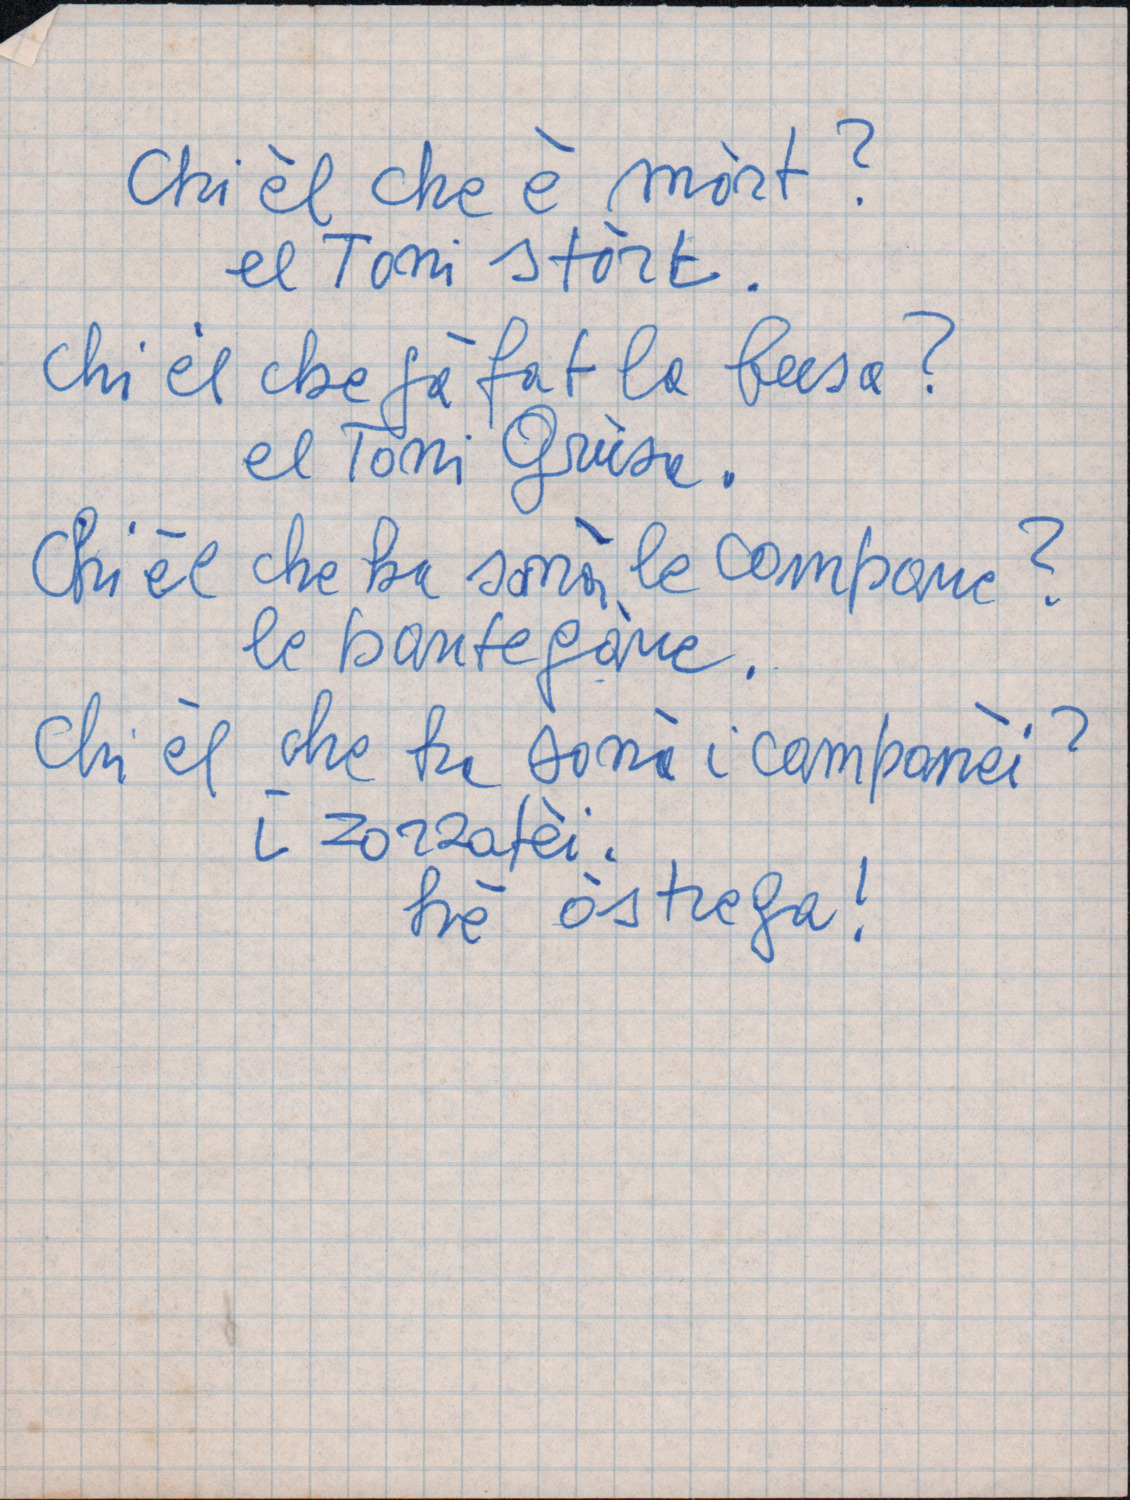 Chi èl che è mòrt?
el Toni stòrt.
Chi èl che gà fat la busa?
el Toni Grùsa.
Chi èl che ha sonà le campane?
le pantegàne.
Chi èl che ha sonà i campanèi?
i zorzatèi.
hè òstrega!